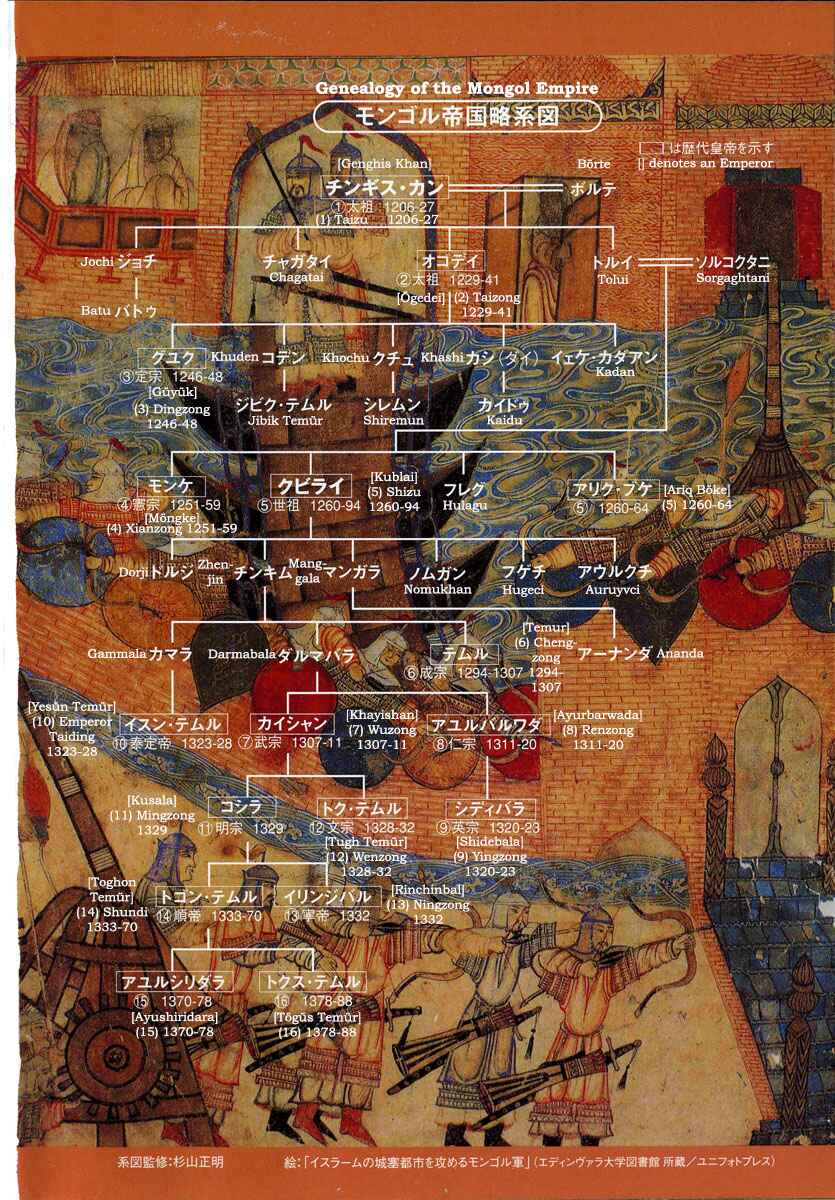 Genealogy of the Mongol Empire
モンゴル帝国略系図
[ ]は歴代皇帝を示す
[] denotes an Emperor
[Genghis Khan]
Börte
チンギス・カン
ボルテ
①太祖 1206-27
(1) Taizu 1206-27
Jochi ジョチ
チャガタイ
Chagatai
オゴデイ
②太祖 1229-41
[Ögedei] (2) Taizong
1229-41
トルイ
Tolui
ソルコクタニ
Sorgaghtani
Batu バトゥ
グユク
③定宗 1246-48
[Güyük]
(3) Dingzong
1246-48
Khuden コデン
Khochu クチュ
Khashi カシ(タイ)
イェケ・カダアン
Kadan
ジビク・テムル
Jibik Temür
シレムン
Shiremun
カイドゥ
Kaidu
モンケ
④憲宗 1251-59
[Möngke]
(4) Xianzong 1251-59
クビライ
⑤世祖 1260-94
[Kublai]
(5) Shizu
1260-94
フレグ
Hulagu
アリク・ブケ
⑤ 1260-64
[Ariq Böke]
(5) 1260-64
Dorji ドルジ
Zhen-
jin
チンキム
Mang-
gala
マンガラ
ノムガン
Nomukhan
フゲチ
Hugeci
アウルクチ
Auruyvci
Gammala カマラ
Darmabala ダルマバラ
テムル
⑥成宗 1294-1307
[Temur]
(6) Cheng-
zong
1294-
1307
アーナンダ Ananda
[Yesün Temür]
(10) Emperor
Taiding
1323-28
イスン・テムル
⑩泰定帝 1323-28
カイシャン
⑦武宗 1307-11
[Khayishan]
(7) Wuzong
1307-11
アユルバルワダ
⑧仁宗 1311-20
[Ayurbarwada]
(8) Renzong
1311-20
[Kusala]
(11) Mingzong
1329
コシラ
⑪明宗 1329
トク・テムル
⑫文宗 1328-32
[Tugh Temür]
(12) Wenzong
1328-32
シディバラ
⑨英宗 1320-23
[Shidebala]
(9) Yingzong
1320-23
[Toghon
Temür]
(14) Shundi
1333-70
トゴン・テムル
⑭順帝 1333-70
イリンジバル
⑬寧帝 1332
[Rinchinbal]
(13) Ningzong
1332
アユルシリダラ
⑮ 1370-78
[Ayushiridara]
(15) 1370-78
トクス・テムル
⑯ 1378-88
[Tögüs Temür]
(16) 1378-88
系図監修:杉山正明
絵:「イスラームの城塞都市を攻めるモンゴル軍」(エディンヴァラ大学図書館 所蔵/ユニフォトプレス)